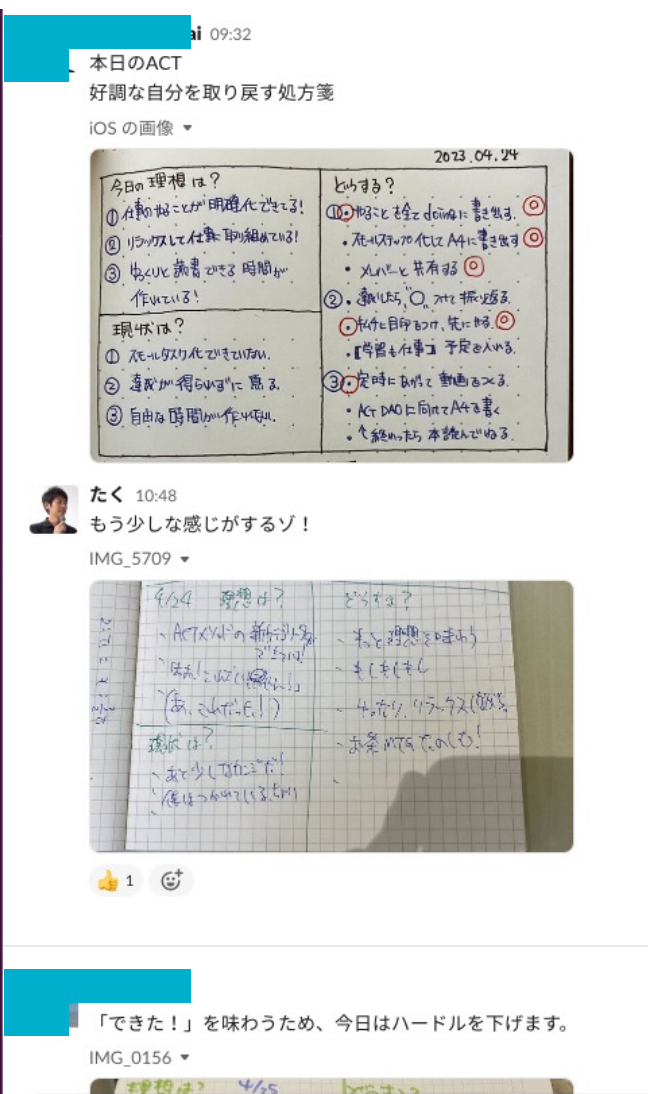 ai 09:32
本日のACT
好調な自分を取り戻す処方箋
iOS の画像
2023.04.24
今日の理想は?
①仕事のやることが明確化できてる!
②リラックスして仕事に取り組めている!
③ゆっくりと読書できる時間が
作れている!
現状は?
①スモールタスク化できていない。
②達成が得られずに焦る。
③自由な時間が作れない。
どうする?
①・やることを全てdoingに書き出す。
・スモールステップ化してA4に書き出す
・メンバーと共有する
②・達成したら"〇"つけて振り返る。
・先にやる。
・【学習も仕事】予定を入れる。
③・定時にあがって動画をつくる。
・ACT DAOに向けてA4を書く
・↑終わったら本読んでねる。
たく 10:48
もう少しな感じがするゾ!
IMG_5709
4/24 理想は?
・ACTメソッドの
(あ、これだった!)
現状は?
・あと少しなかんじだ!
どうする?
・もっと理想を味わう
・もしもしもし
・リラックス
・お茶MTGたのしむ!
1
「できた!」を味わうため、今日はハードルを下げます。
IMG_0156
理想は? 4/25 どうする?